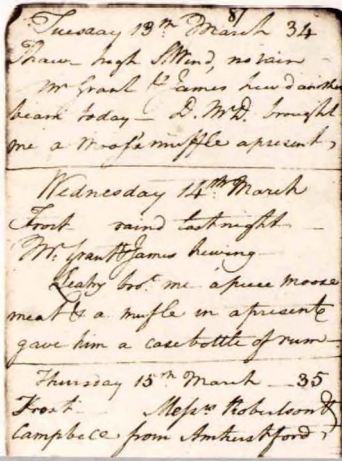 81
Tuesday 13th March 34
Thaw high S Wind, no rain
Mr. Grant & James hew'd another
beam today — D. McD. brought
me a Moose muffle a present,
Wednesday 14th March
Frost raind last night —
Mr. Grant & James hewing —
Leahy bro.t me a piece moose
meat & a mufle in a present &
gave him a case bottle of rum —
Thursday 15th March — 35
Frost — Messrs Robertson &
Campbell from Amherstford,